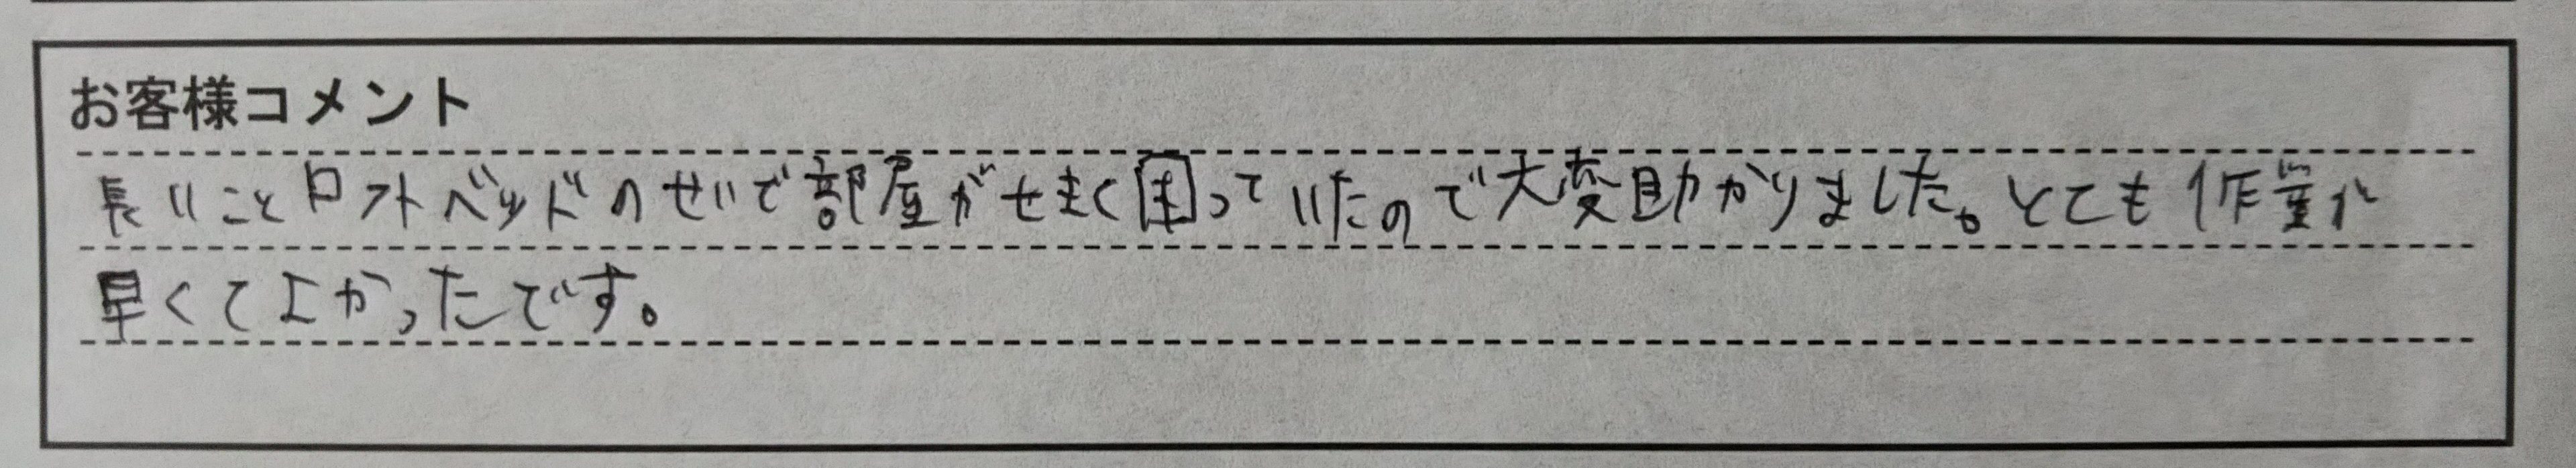 お客様コメント
長いことロフトベッドのせいで部屋がせまく困っていたので大変助かりました。とても作業が
早くてよかったです。